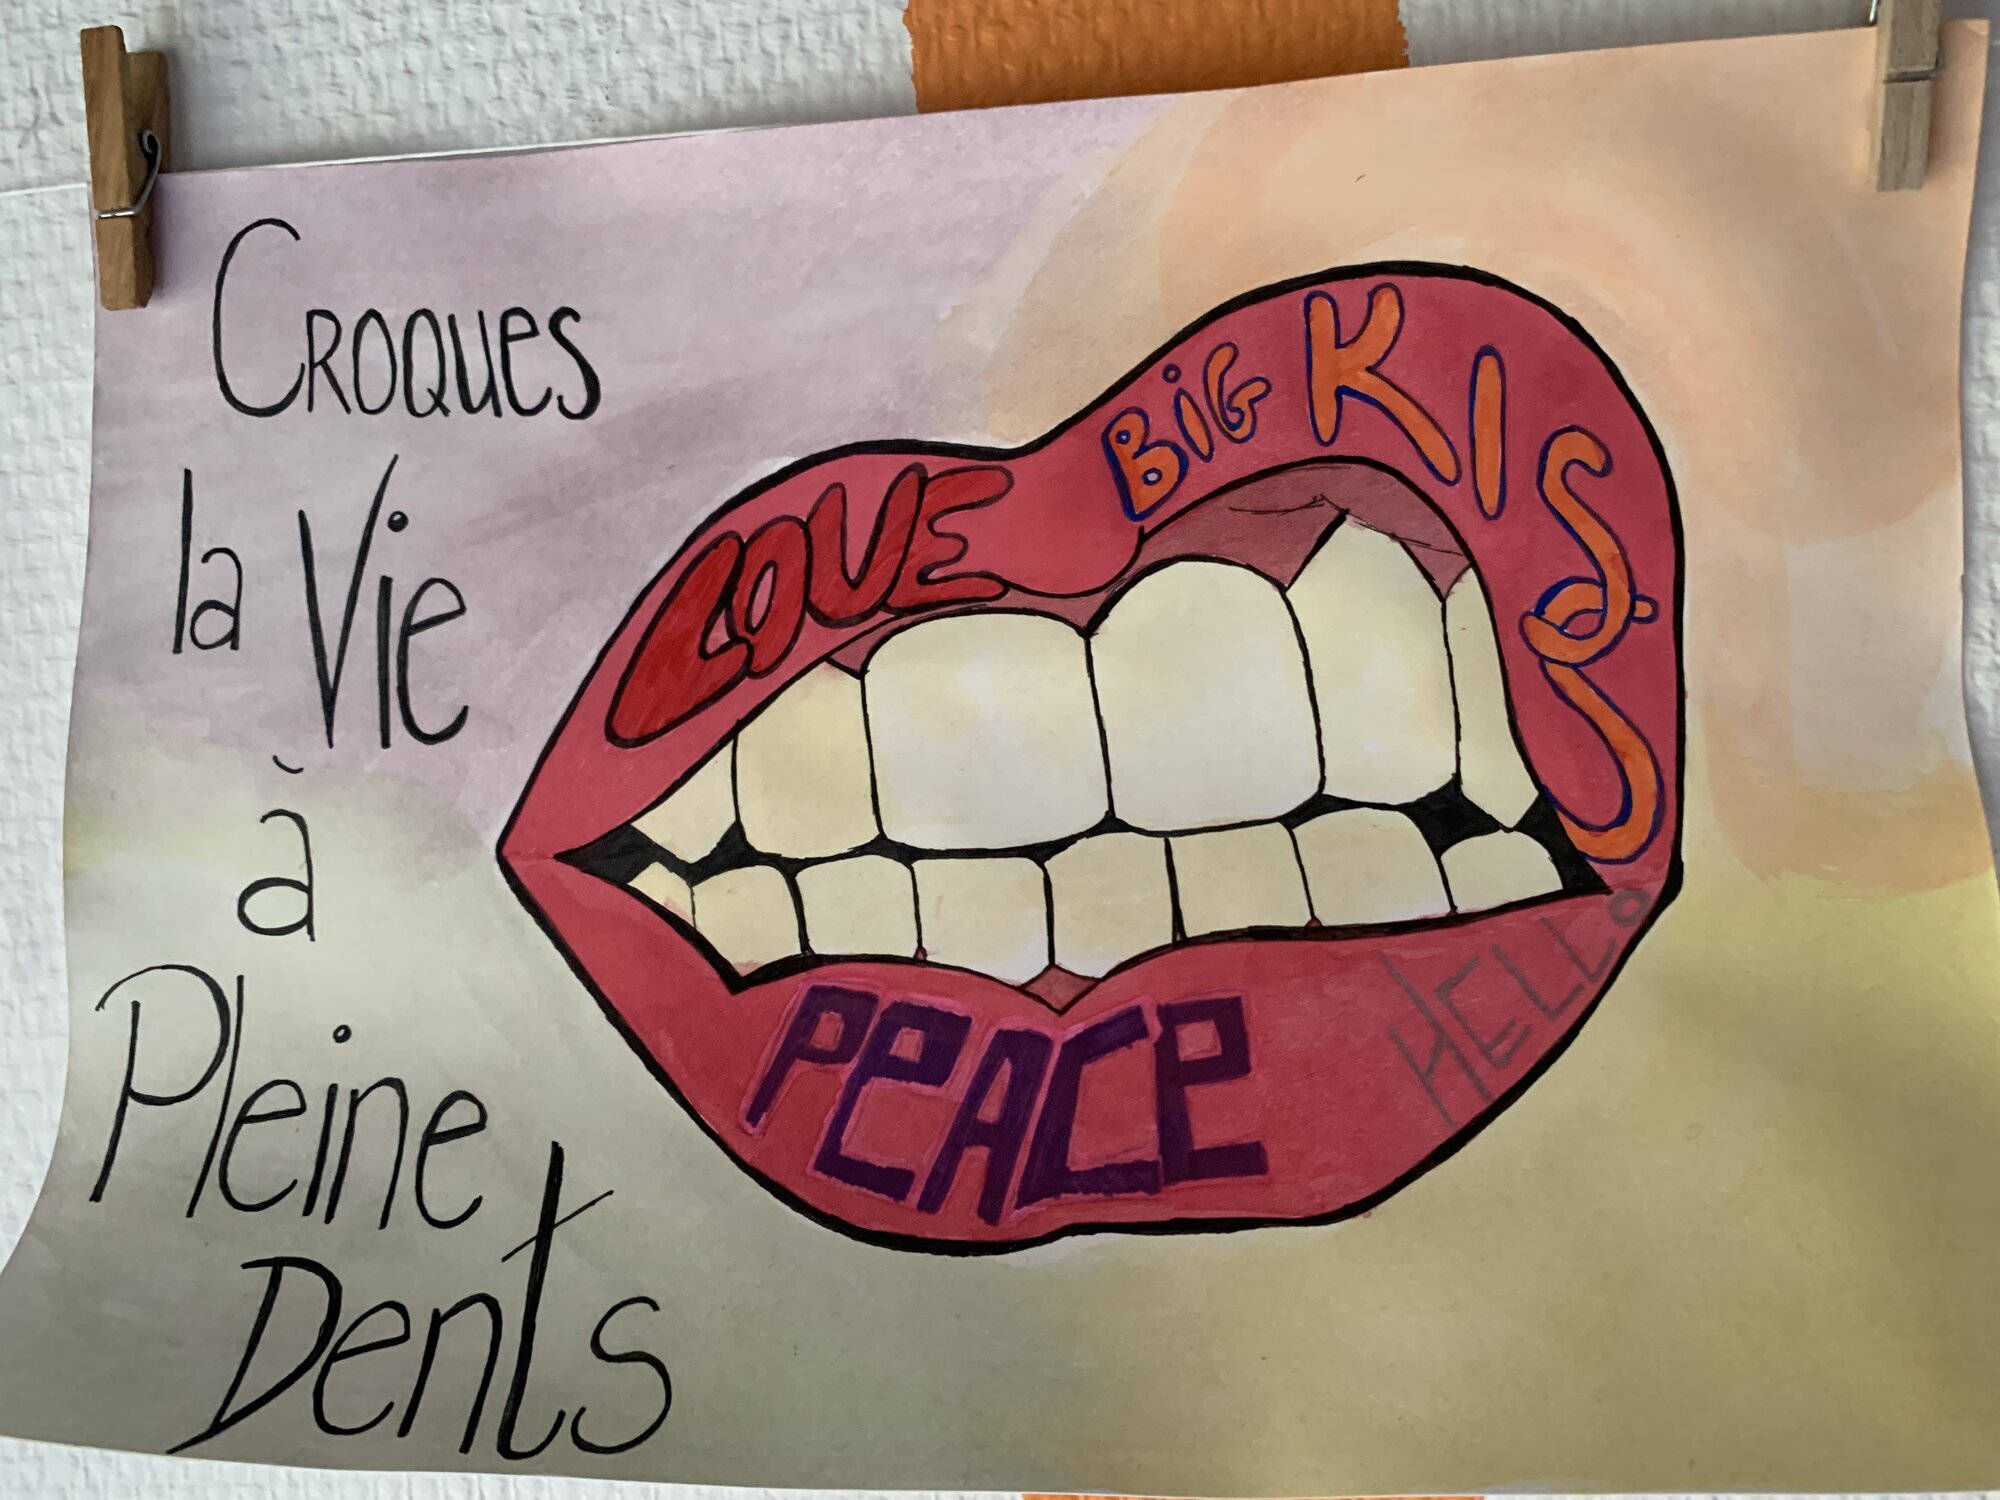 Croques
la Vie
à
Pleine
Dents
LOVE
BiG KISS
PeACe
HELLO